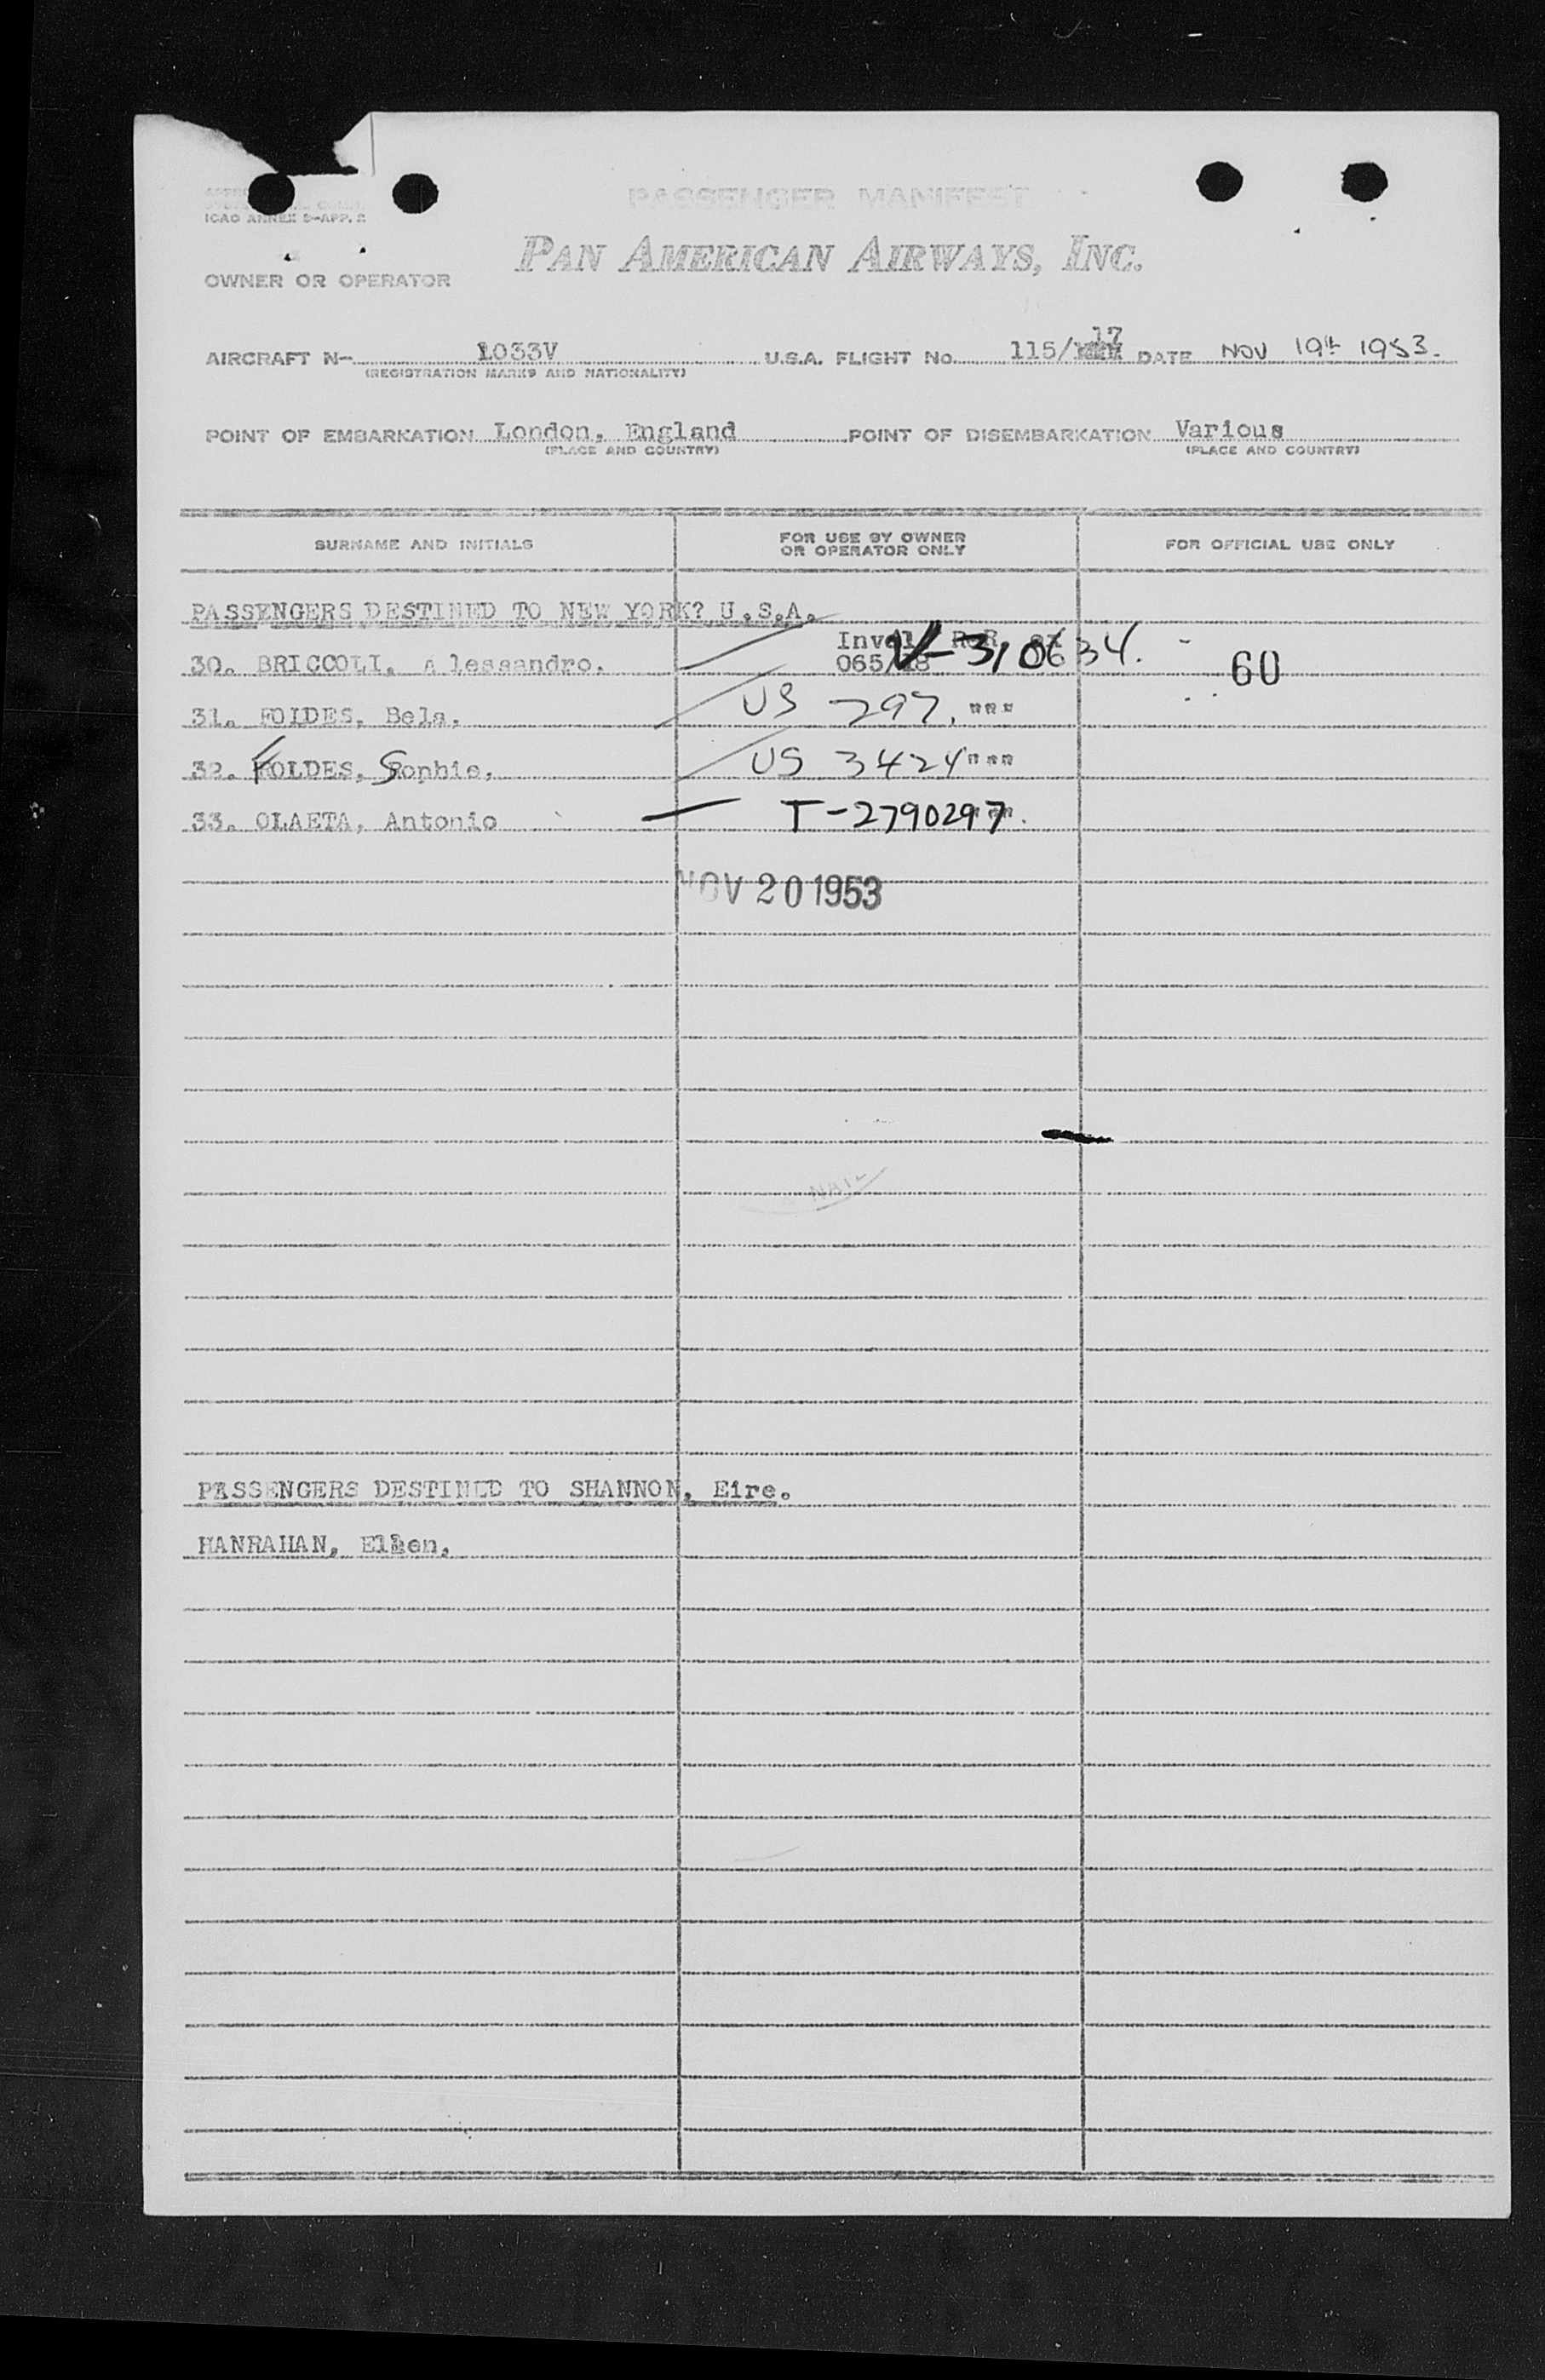 PASSENGER MANIFEST
ICAO ANNEX 9-APP. 2
PAN AMERICAN AIRWAYS, INC.
OWNER OR OPERATOR
17
AIRCRAFT N- 1033V U.S.A. FLIGHT No. 115/ DATE NOV 19th 1953.
(REGISTRATION MARKS AND NATIONALITY)
POINT OF EMBARKATION London, England POINT OF DISEMBARKATION Various
(PLACE AND COUNTRY) (PLACE AND COUNTRY)
SURNAME AND INITIALS FOR USE BY OWNER OR OPERATOR ONLY FOR OFFICIAL USE ONLY
PASSENGERS DESTINED TO NEW YORK? U.S.A.
30. BRICCOLI, Alessandro. V-310634. 60
31. FOLDES, Bela. US 297. """
32. FOLDES, Sophie. US 3424 """
33. OLAETA, Antonio T-2790297.
NOV 20 1953
PASSENGERS DESTINED TO SHANNON, Eire.
HANRAHAN, Ellen.